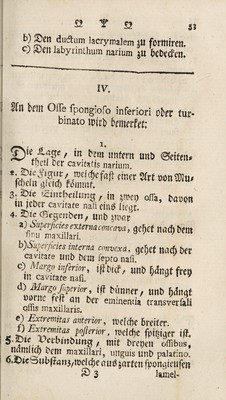 51
b) Den ductum lacrymalem zu formiren.
c) Den labyrinthum narium zu bedecken.
IV.
An dem Osse spongioso inferiori oder tur-
binato wird bemerket:
1.
Die Lage, in dem untern und Seiten-
theil der cavitatis narium.
2. Die Figur, welche fast einer Art von Mu-
scheln gleich kömmt.
3. Die Eintheilung, in zwey ossa, davon
in jeder cavitate nasi eins liegt.
4. Die Gegenden, und zwar
a) Superficies externa concava, gehet nach dem
sinu maxillari.
b) Superficies interna convexa, gehet nach der
cavitate und dem septo nasi.
c) Margo inferior, ist dick, und hängt frey
in cavitate nasi.
d) Margo superior, ist dünner, und hängt
vorne fest an der eminentia transversali
ossis maxillaris.
e) Extremitas anterior, welche breiter.
f) Extremitas posterior, welche spitziger ist.
5. Die Verbindung, mit dreyen ossibus,
nämlich dem maxillari, unguis und palatino.
6. Die Substanz, welche aus zarten spongieusen
D 3 lamel-